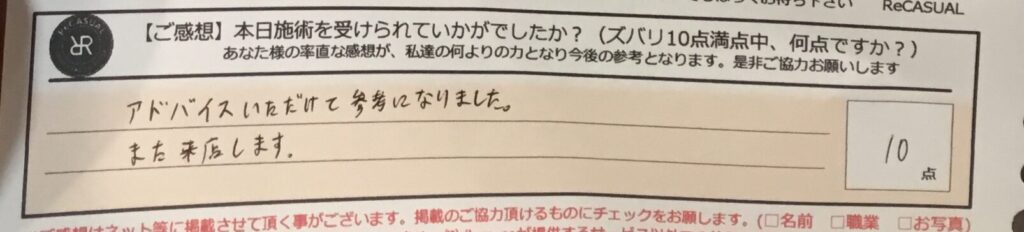 ReCASUAL
ReCASUAL
【ご感想】本日施術を受けられていかがでしたか？（ズバリ10点満点中、何点ですか？）
あなた様の率直な感想が、私達の何よりの力となり今後の参考となります。是非ご協力お願いします
アドバイスいただけて参考になりました。
また来店します。
10
点
ご感想はネット等に掲載させて頂く事がございます。掲載のご協力頂けるものにチェックをお願します。(□名前 □職業 □お写真)